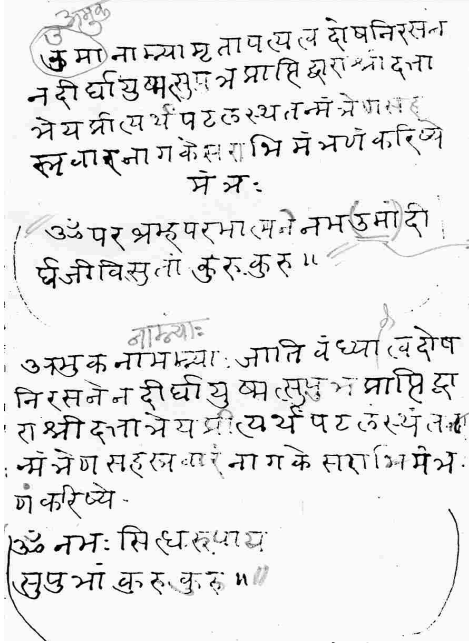 अमुक
उ
कुमा नाम्न्यामृतापत्यत्वदोषनिरसन
नदीर्घायुष्मत्सुपुत्रप्राप्तिद्वाराश्रीदत्ता
त्रेयप्रीत्यर्थंपटलस्थतन्मंत्रेणसह
स्त्रवारनागकेसराभिमंत्रणंकरिष्ये
मंत्रः
ॐ परब्रम्हपरमात्मने नम उमां दी
र्घजीविसुतां कुरु कुरु॥
नाम्न्याः
अमुकनामम्न्याः जातिवंध्यात्वदोष
निरसनेनदीर्घायुष्मत्सुपुत्रप्राप्तिद्वा
राश्रीदत्तात्रेयप्रीत्यर्थंपटलंस्थंत
न्मंत्रेणसहस्त्रवारंनागकेसराभिमंत्र
णंकरिष्ये.
ॐ नमः सिध्धरूपाय
सुपुत्रां कुरु कुरु॥